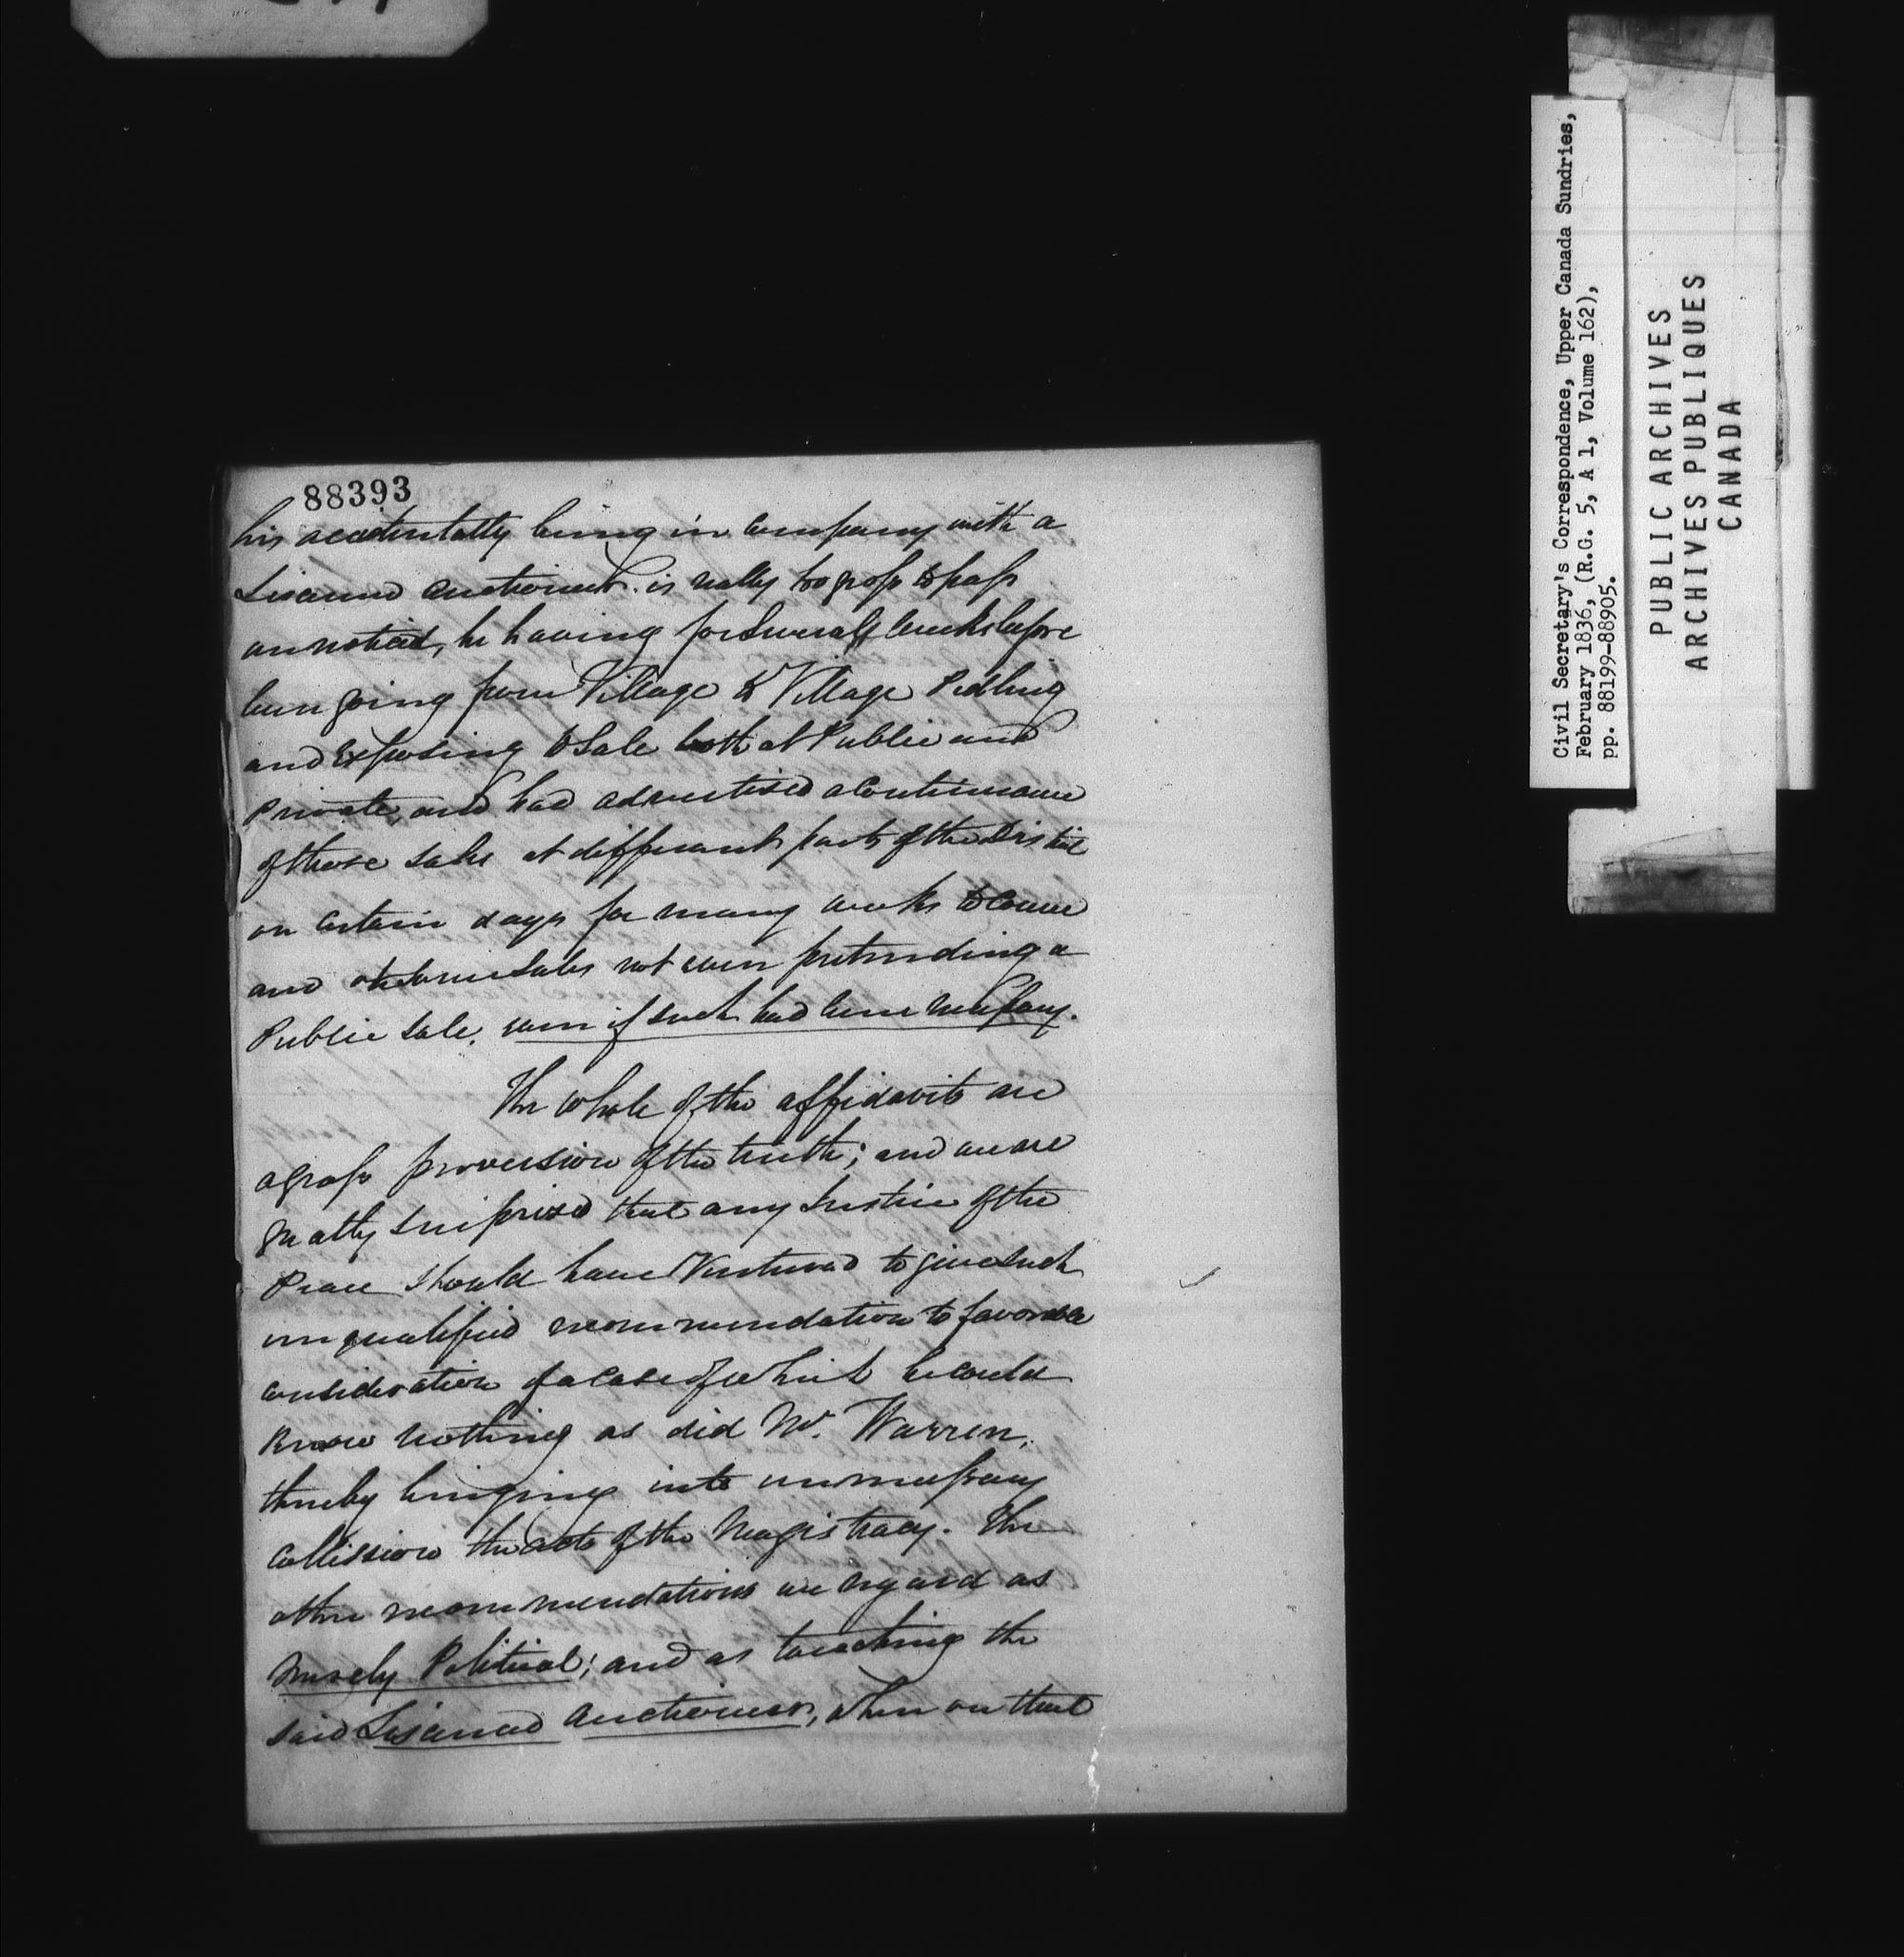 88393
his accidentally being in Company with a
Lisanced Auctioneer. is really too gross to pass
unnoticed, he having for Several Weeks before
been going from Village to Village Pedling
and Exposing to Sale both at Public and
Private, and had advertised a Continuance
of those Sales at different parts of the District
on certain days for many weeks to Come
and at some Sales not even pretending a
Public Sale, even if such had been necessary.
The Whole of the affidavits are
a gross perversion of the truth; and we are
greatly Surprised that any Justice of the
Peace Should have Ventured to give Such
unqualified recommendation to favorable
consideration of a Case of which he could
Know nothing as did Mr. Warren,
thereby bringing into unnecessary
Collission the acts of the Magistracy. The
other recommendations we regard as
merely Political; and as touching the
said Lisanced Auctioneer, when on that
Civil Secretary's Correspondence, Upper Canada Sundries,
February 1836, (R.G. 5, A 1, Volume 162),
pp. 88199-88905.
PUBLIC ARCHIVES
ARCHIVES PUBLIQUES
CANADA